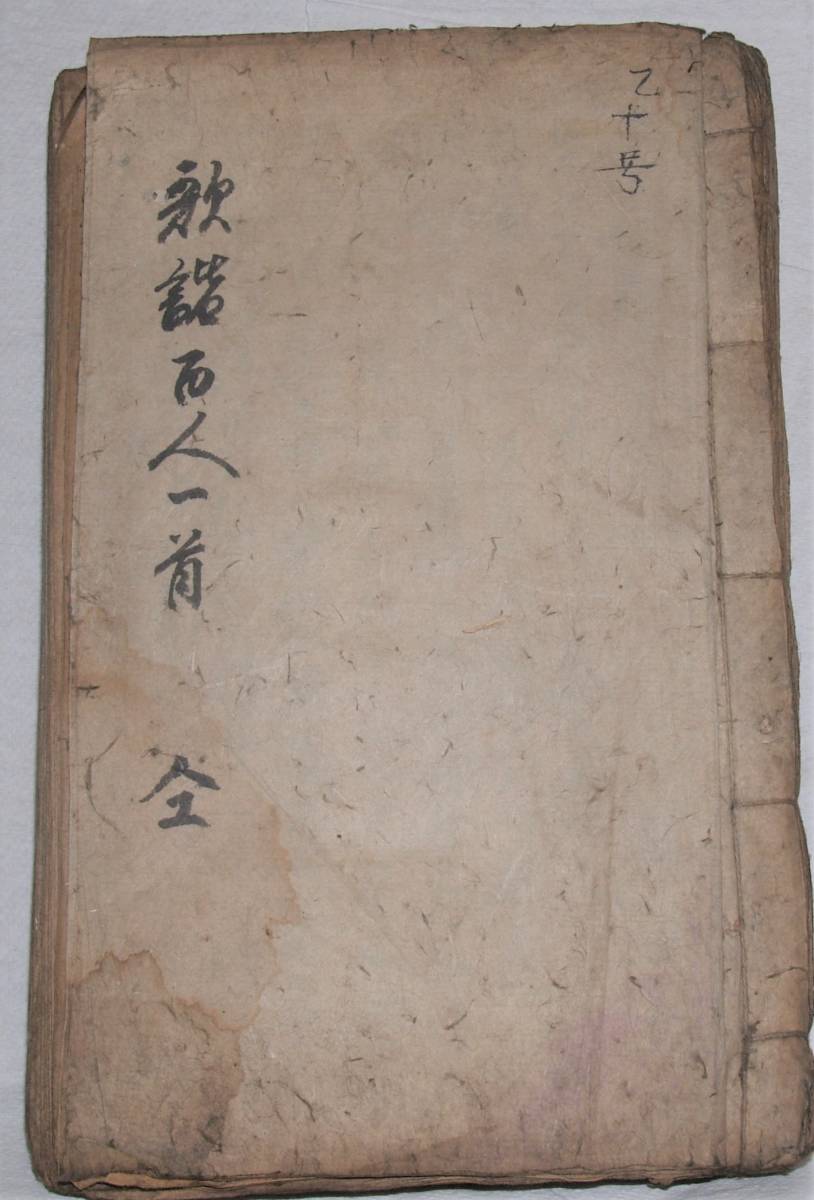 乙十号
歌諧百人一首 全